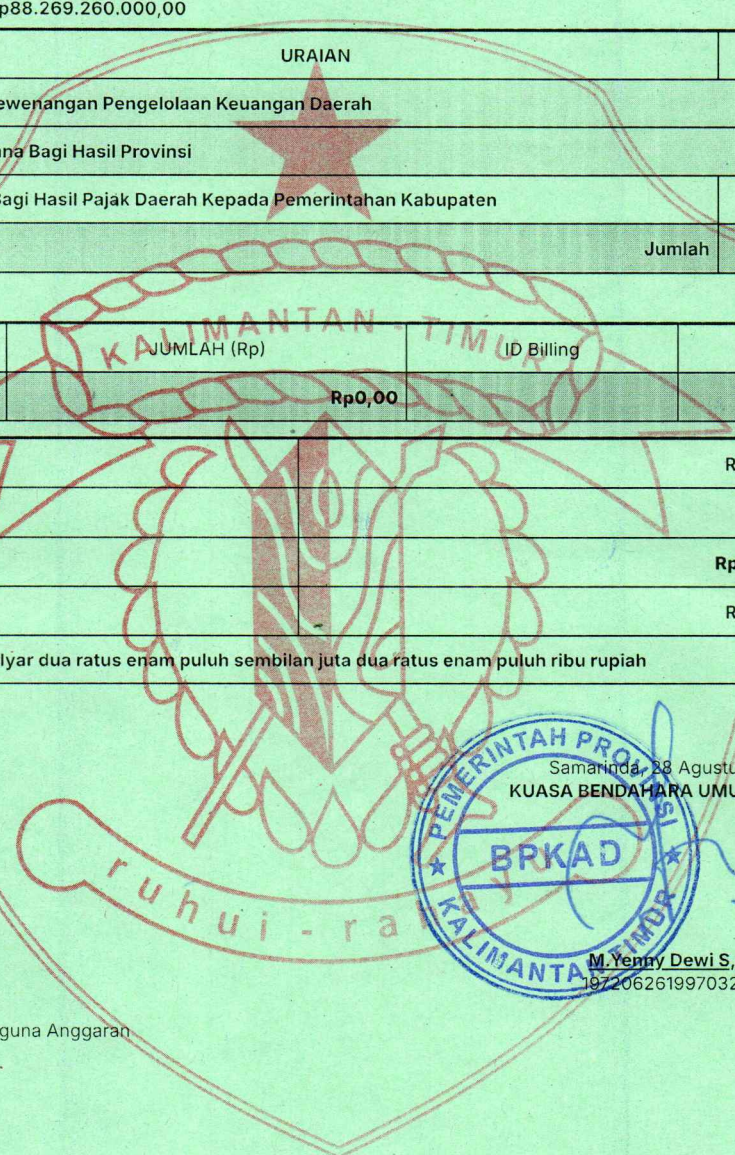 p88.269.260.000,00
URAIAN
ewenangan Pengelolaan Keuangan Daerah
ana Bagi Hasil Provinsi
Bagi Hasil Pajak Daerah Kepada Pemerintahan Kabupaten
Jumlah
KALIMANTAN - TIMUR
JUMLAH (Rp) ID Billing
Rp0,00
R
Rp
R
lyar dua ratus enam puluh sembilan juta dua ratus enam puluh ribu rupiah
PEMERINTAH PROVINSI
Samarinda, 28 Agustu
KUASA BENDAHARA UMU
BPKAD
KALIMANTAN TIMUR
ruhui - rahayu
M.Yenny Dewi S,
197206261997032
guna Anggaran